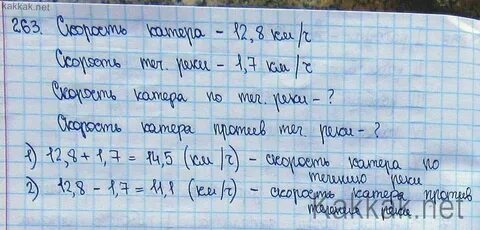 kakkak.net
263. Скорость катера - 12,8 км/ч
Скорость теч. реки - 1,7 км/ч
Скорость катера по теч. реки - ?
Скорость катера против теч. реки - ?
1) 12,8 + 1,7 = 14,5 (км/ч) - скорость катера по
течению реки
2) 12,8 - 1,7 = 11,1 (км/ч) - скорость катера против
течения реки
kakkak.net